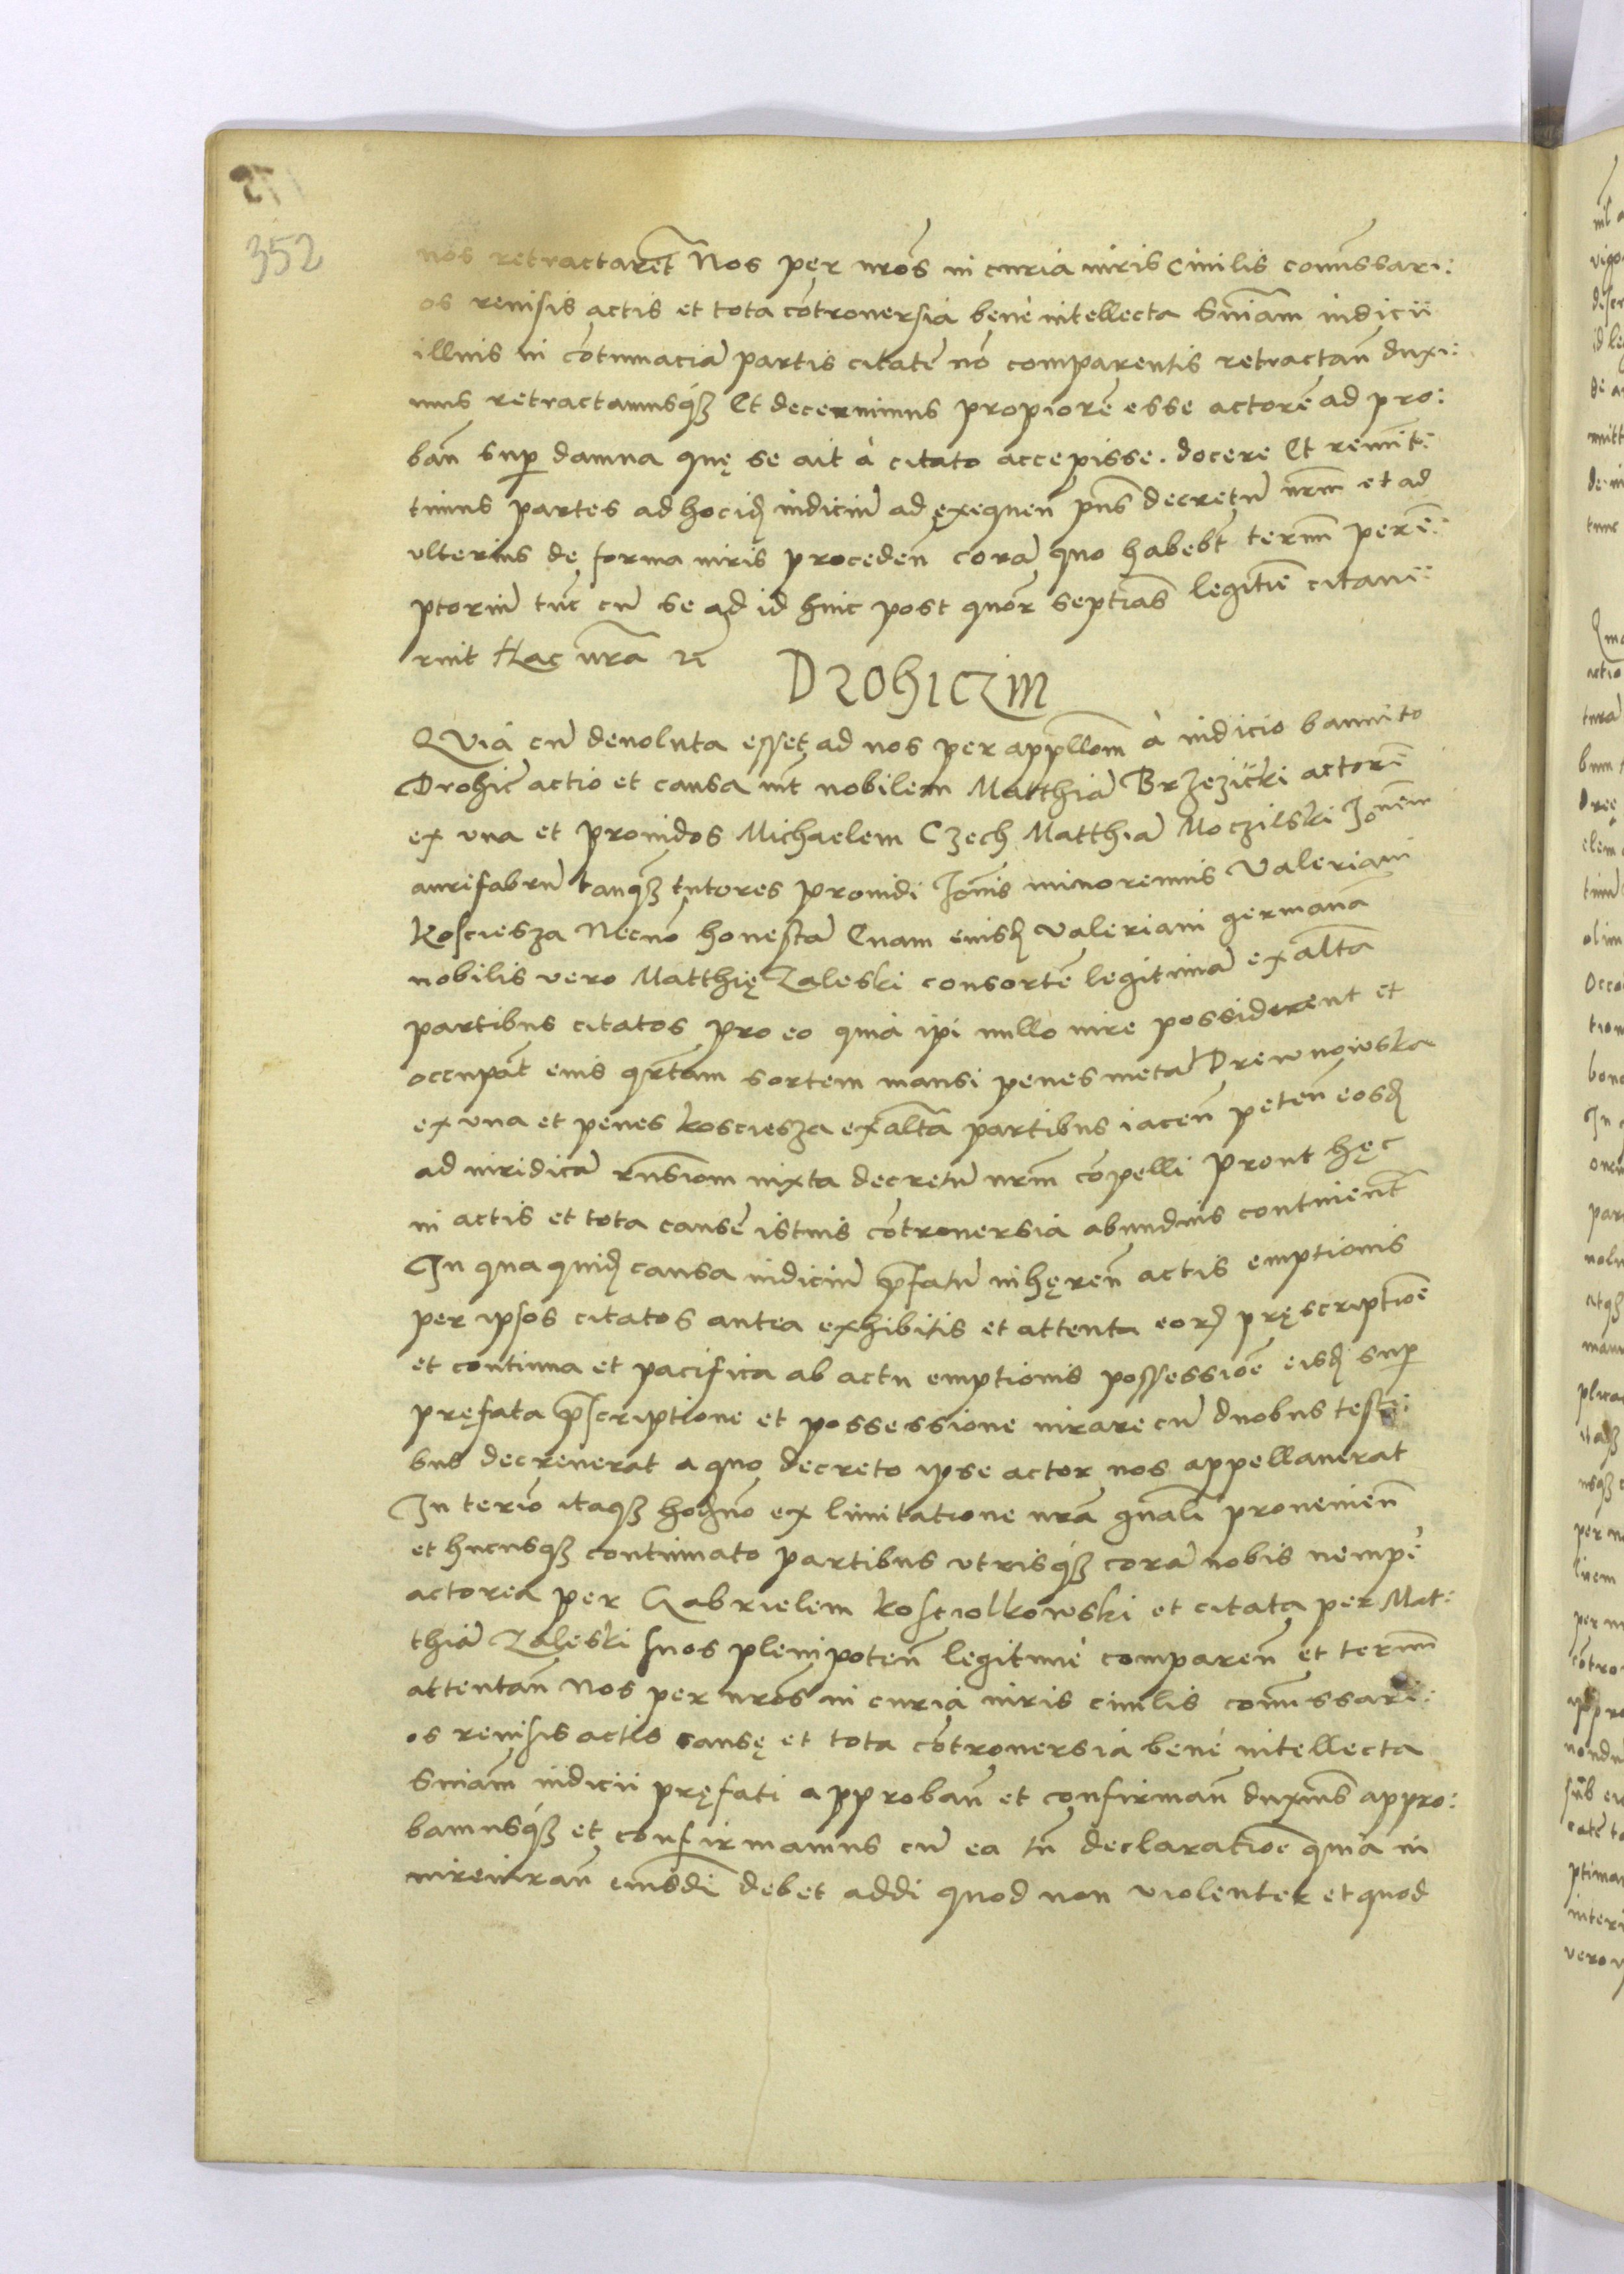 352
nos retractaret͂ Nos per nr̃os in curia iuris Ciuilis com̃issari:
os reuisis actis et tota cõtrouersia bene intellecta Sñiam iudicii
illius in cõtumaciã partis citatẽ nõ comparentis retractan̄ duxi:
mus retractamusq́ꝫ Et decernimus propiorẽ esse actorẽ ad pro:
ban̄ suꝑ damna quę se ait à citato accepisse. docere Et remit:
timus partes ad hocid iudiciũ ad exequen̄ pñs decretũ nrm̃ et ad
vlterius de forma iuris proceden̄ corã quo habebt̃ termĩ perẽ:
ptoriũ tũc cũ se ad id hinc post quõr septĩas legitĩe citaue:
rint Hac nr̃a ꝛc̃
Drohiczin
QVia cũ deuoluta esset ad nos per appllõm à iudicio bannito
Drohic̃ actio et causa int̃ nobilem Matthiã Brzezicki actorẽ
ex vna et prouidos Michaelem Czech Matthiã Moczilski Joñem
aurifabrũ tanqꝫ tutores prouidi Joñis minorennis Valeriani
Kosciesza Necnõ honestã Annam eiusd Valeriani germanã
nobilis vero Matthię Zaleski consortẽ legitimã ex alt̃a
partibus citatos pro eo quia ip̃i nullo iure possiderent et
occupãt eius qrtam sortem mansi penes metã Drewnowska
ex vna et penes Kosciesza ex alt̃a partibus iacen̄ peten̄ eosd
ad iuridicã rñsiom iuxta decretũ nrm̃ cõpelli Prout hęc
in actis et tota causẽ istius cõtrouersia abundius continent͂
In qua quid causa iudiciũ p̃fatũ inhęren̄ actis emptionis
per ipsos citatos antea exhibitis et attenta eorꝫ pręscriptiõe
et continua et pacifica ab actu emptionis possessiõe eisd suꝑ
pręfata p̃scriptione et possessione iurare cũ duobus testi:
bus decreuerat a quo decreto ipse actor nos appellauerat
In teriõ itaqꝫ hodnõ ex limitatione nr̃a gñali prouenien̄
et hucusqꝫ continuato partibus vtrisq́ꝫ corã nobis nempe
actorea per Gabrielem Kosciolkowski et citata per Mat:
thiã Zaleski suos plenipoten̄ legitime comparen̄ et termĩ
attentan̄ Nos per nr̃os in curia iuris ciuilis com̃issari:
os reuisis actis causę et tota cõtrouersia bene intellecta
Sñiam iudicii pręfati approban̄ et confirman̄ duximꝰ appro:
bamusq́ꝫ et confirmamus cũ ea tñ declaratioe quia in
iureiuran̄ eiusdi debet addi quod non violenter et quod